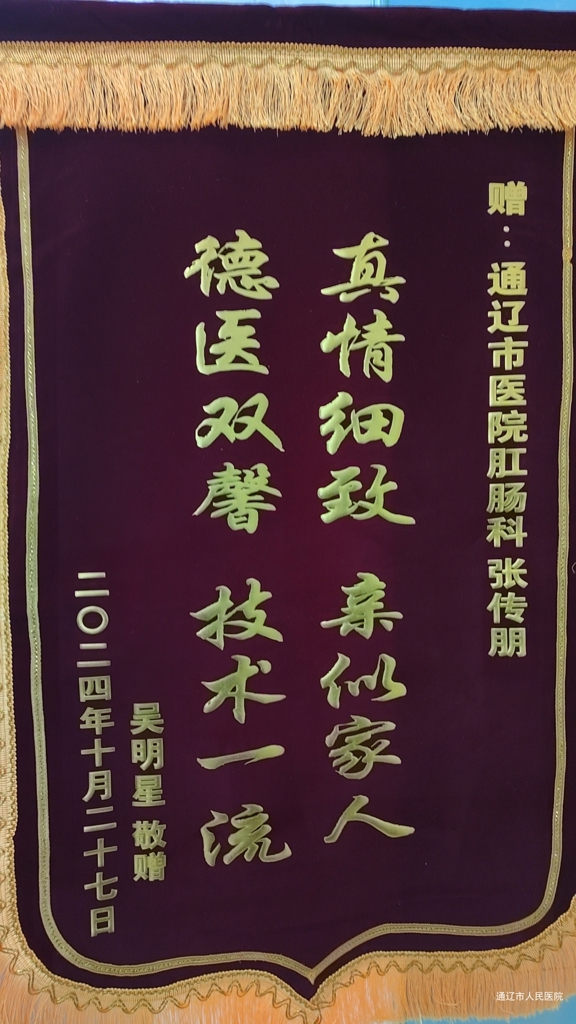 赠：通辽市医院肛肠科 张传朋
真情细致 亲似家人
德医双馨 技术一流
吴明星 敬赠
二〇二四年十月二十七日
通辽市人民医院